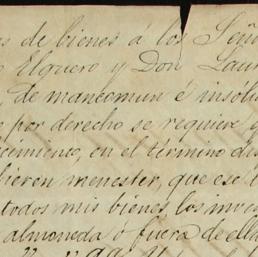 s de bienes á los Seño
Elguero y Don Laur
de mancomun é insoli
por derecho se requiere y
cimiento, en el término dis
bieren menester, que ese t
todos mis bienes los mues
almoneda ó fuera de ella